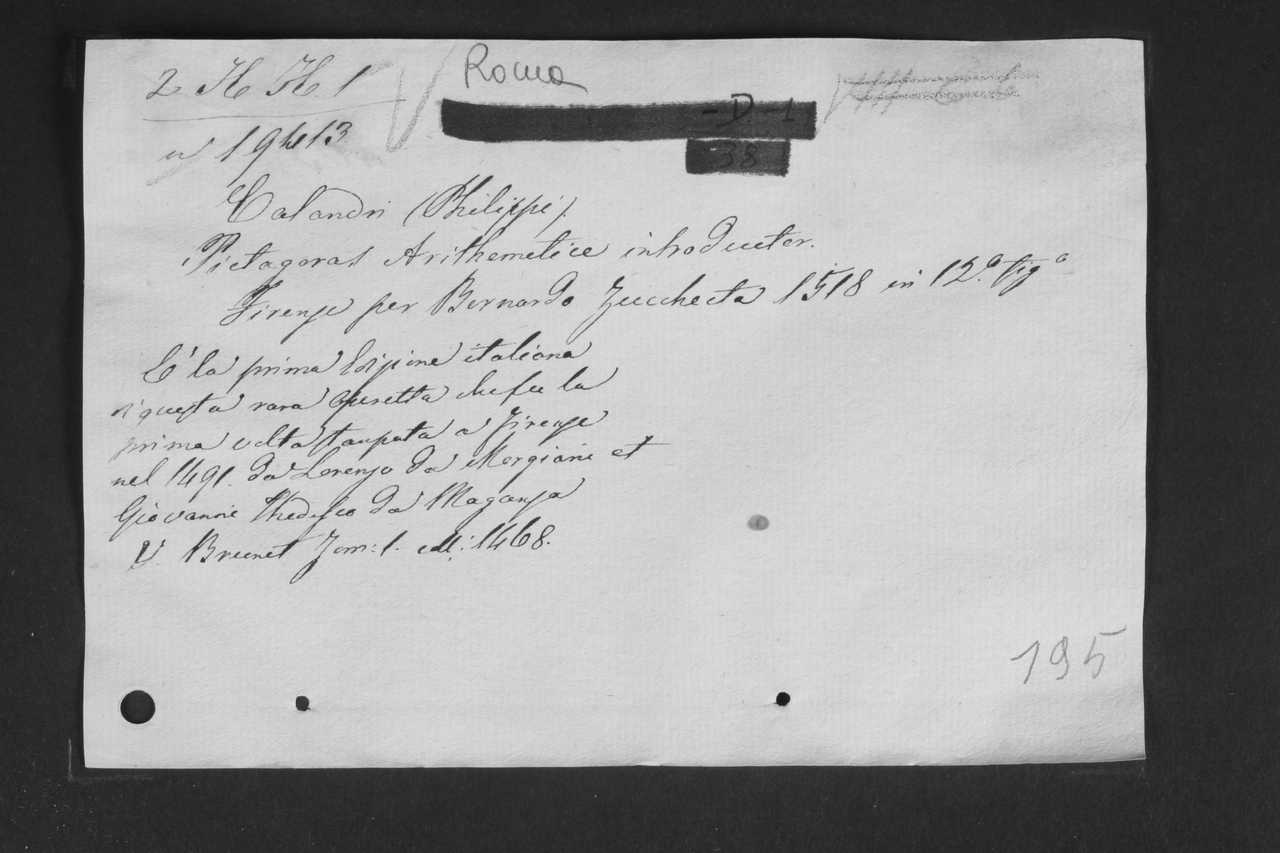 Roma
2 H H 1
- D - 1
38
1913
Calandri (Philippi).
Pictagoras Arithemetice introductor.
Firenze per Bernardo Zucchecta 1518 in 12.º fig.º
E' la prima Edizione italiana
di questa rara Operetta che fu la
prima volta stampata a Firenze
nel 1491. da Lorenzo da Morgiani et
Giovanni Thedesco da Maganza
V. Brunet Tom: 1. col: 1468.
195